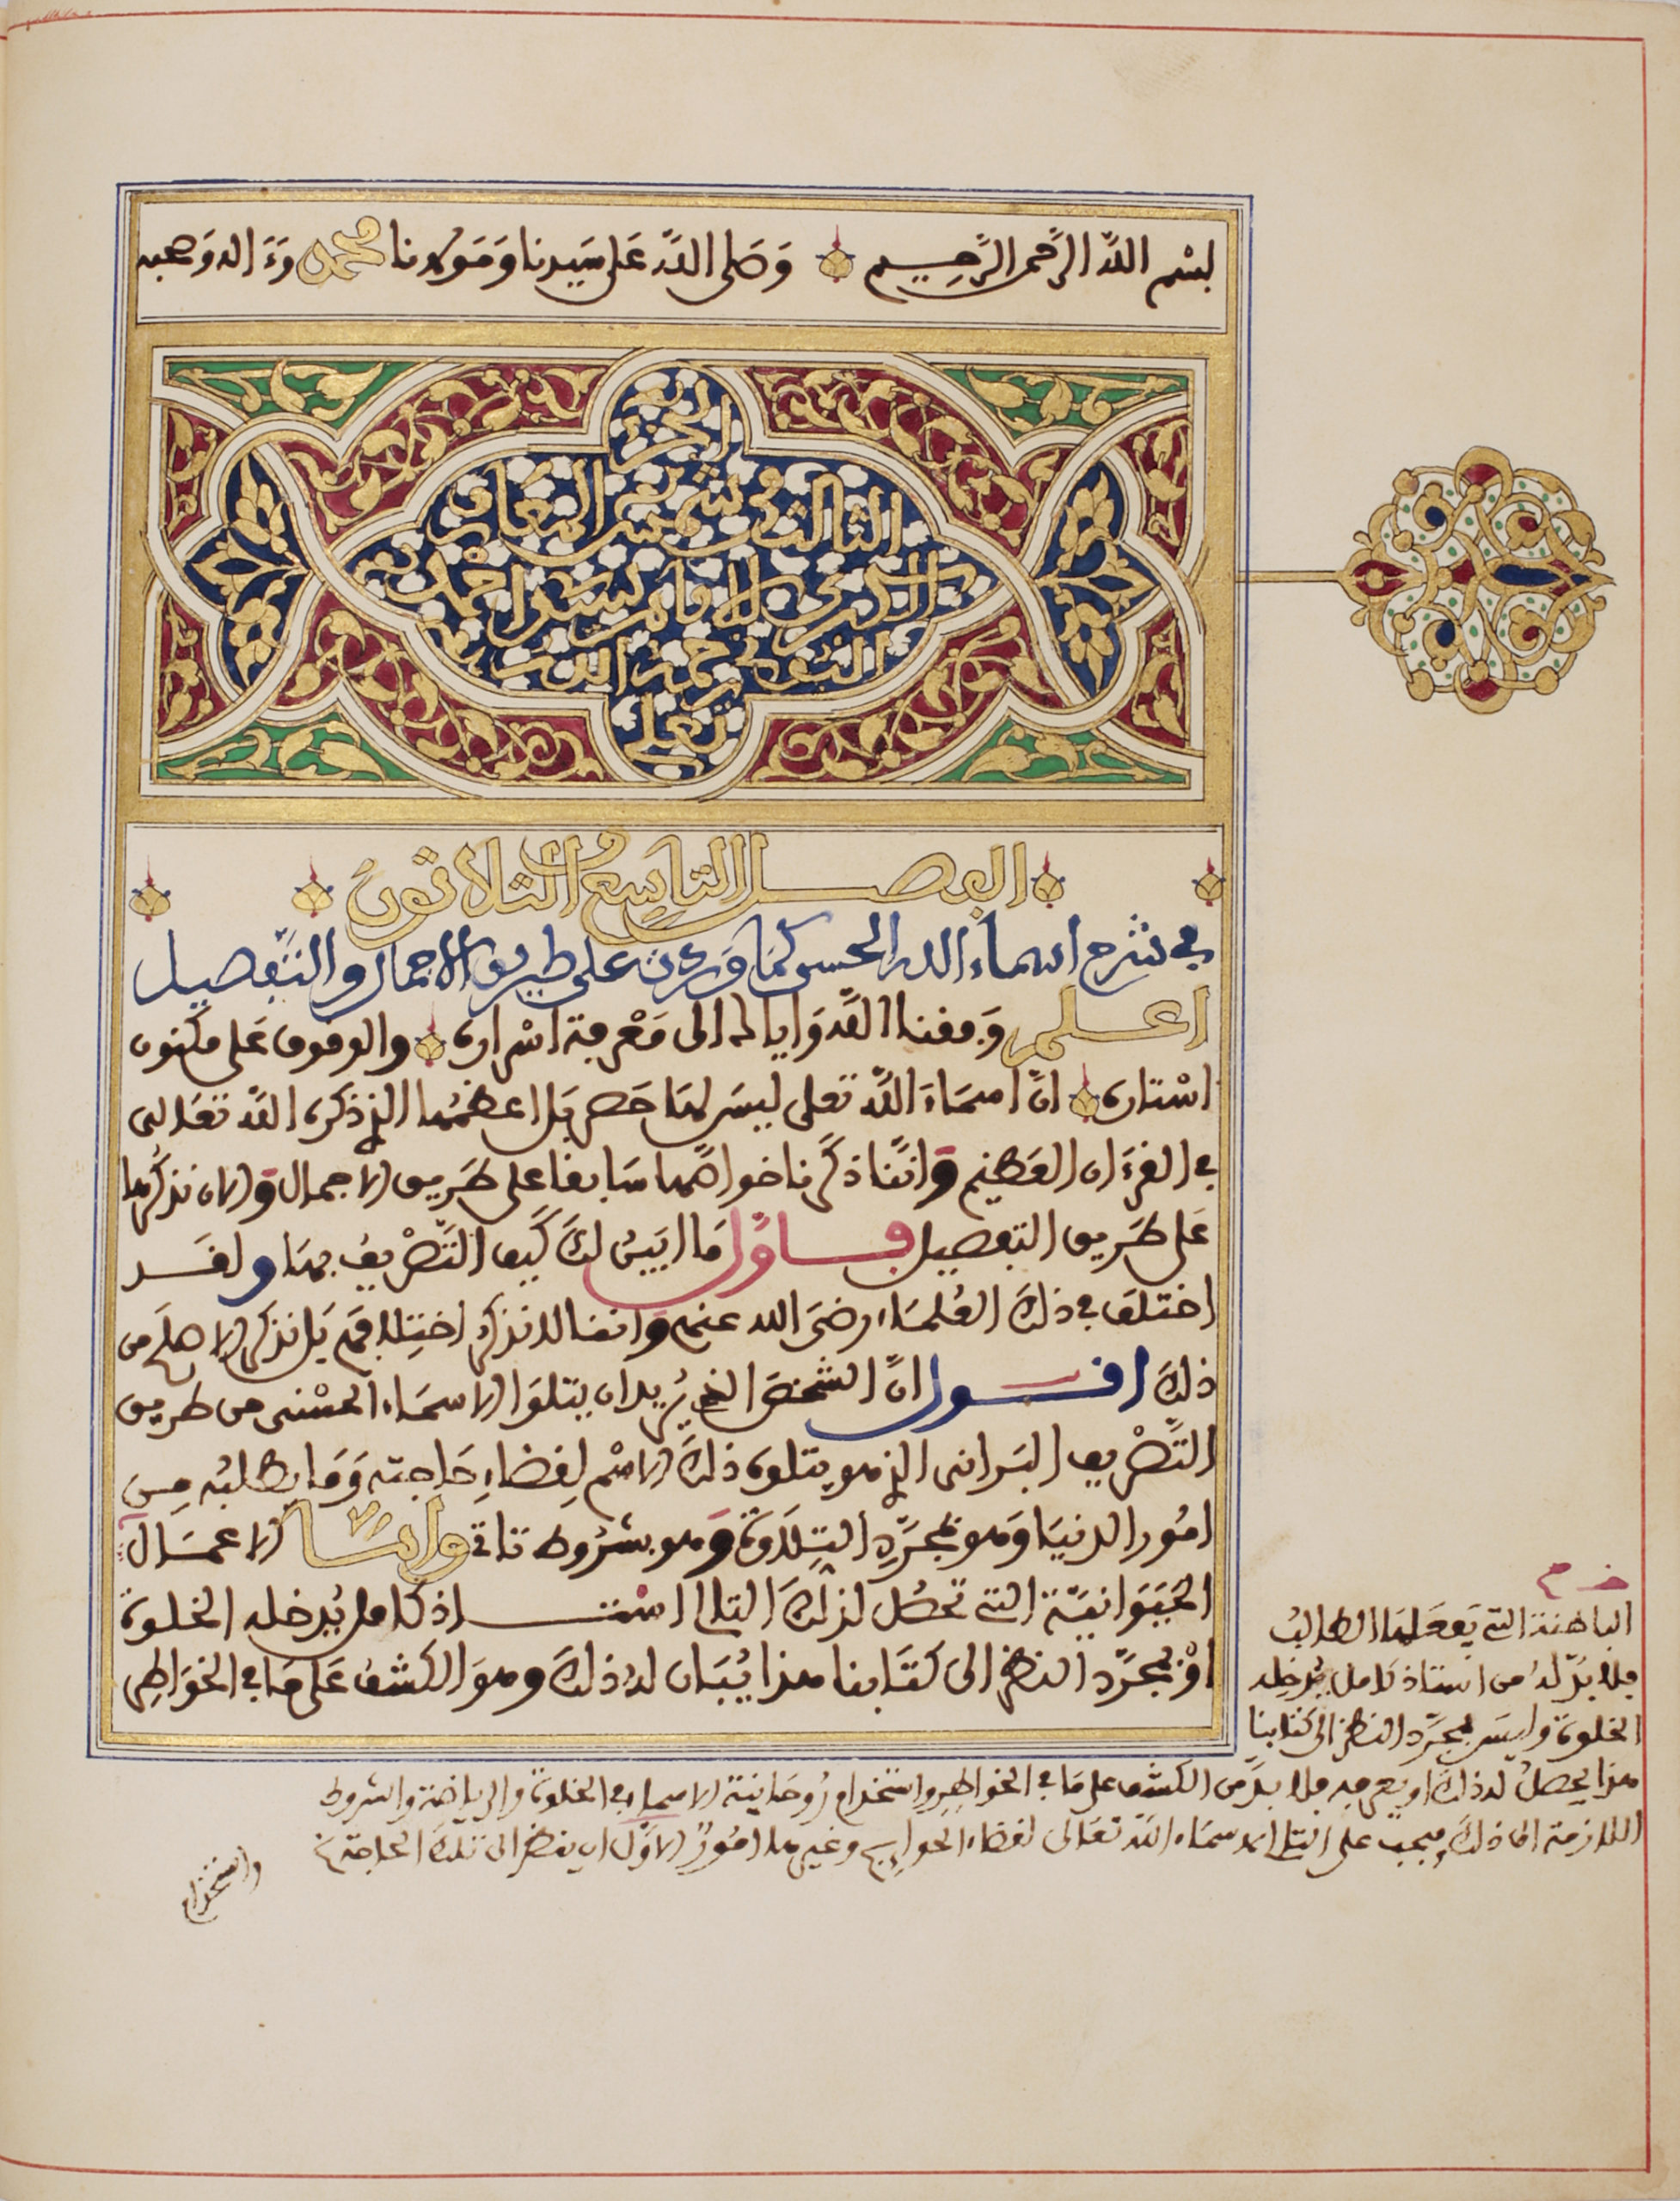 بسم الله الرحمن الرحيم وصلى الله على سيدنا ومولانا محمد وءاله وصحبه
الجزء
الثالث من شمس المعارف
الكبرى للامام سيدي احمد
البوني رحمه الله
تعلى
الفصل التاسع والثلاثون
في شرح اسماء الله الحسنى كما وردت على طريق الاجمال والتفصيل
اعلم وفقنا الله واياك الى معرفة اسراره والوقوف على مكنون
استاره ان اسماء الله تعلى ليس لها حصر بل اعظمها الذي ذكره الله تعالى
في القرءان العظيم وانّنا ذكرنا خواصها سابقا على طريق الاجمال والان نذكرها
على طريق التفصيل فاول ما ابين لك كيف التصريف بها ولقد
اختلف في ذلك العلماء رضي الله عنهم واننا لا نذكر اختلافهم بل نذكر الاصلح من
ذلك اقول ان الشخص الذي يريد ان يتلوا الاسماء الحسنى من طريق
التصريف البراني الذي هو يتلوه ذلك الاسم لقضاء حاجته وما يطلبه من
امور الدنيا وهو بمجرد التلاوة وهو بشروط تاتي واما الاعمال
الجوانية التي تحصل لذلك التالي استاذ كامل يدخله الخلوة
او بمجرد النظر الى كتابنا هذا يبان له ذلك وهو الكشف على ما في الخواطر
الباطنة التي يفعلها الطالب
فلا بد له من استاذ كامل يدخله
الخلوة وليس بمجرد النظر الى كتابنا
هذا يحصل له ذلك او يعرفه فلا بد من الكشف على ما في الخواطر واستخدام روحانية الاسماء في الخلوة والرياضة والشروط
اللازمة الى ذلك ويجب على التالي لاسماء الله تعالى لقضاء الحوايج وغيرها امور الاول ان ينظر الى تلك الحاجة
واستخدام